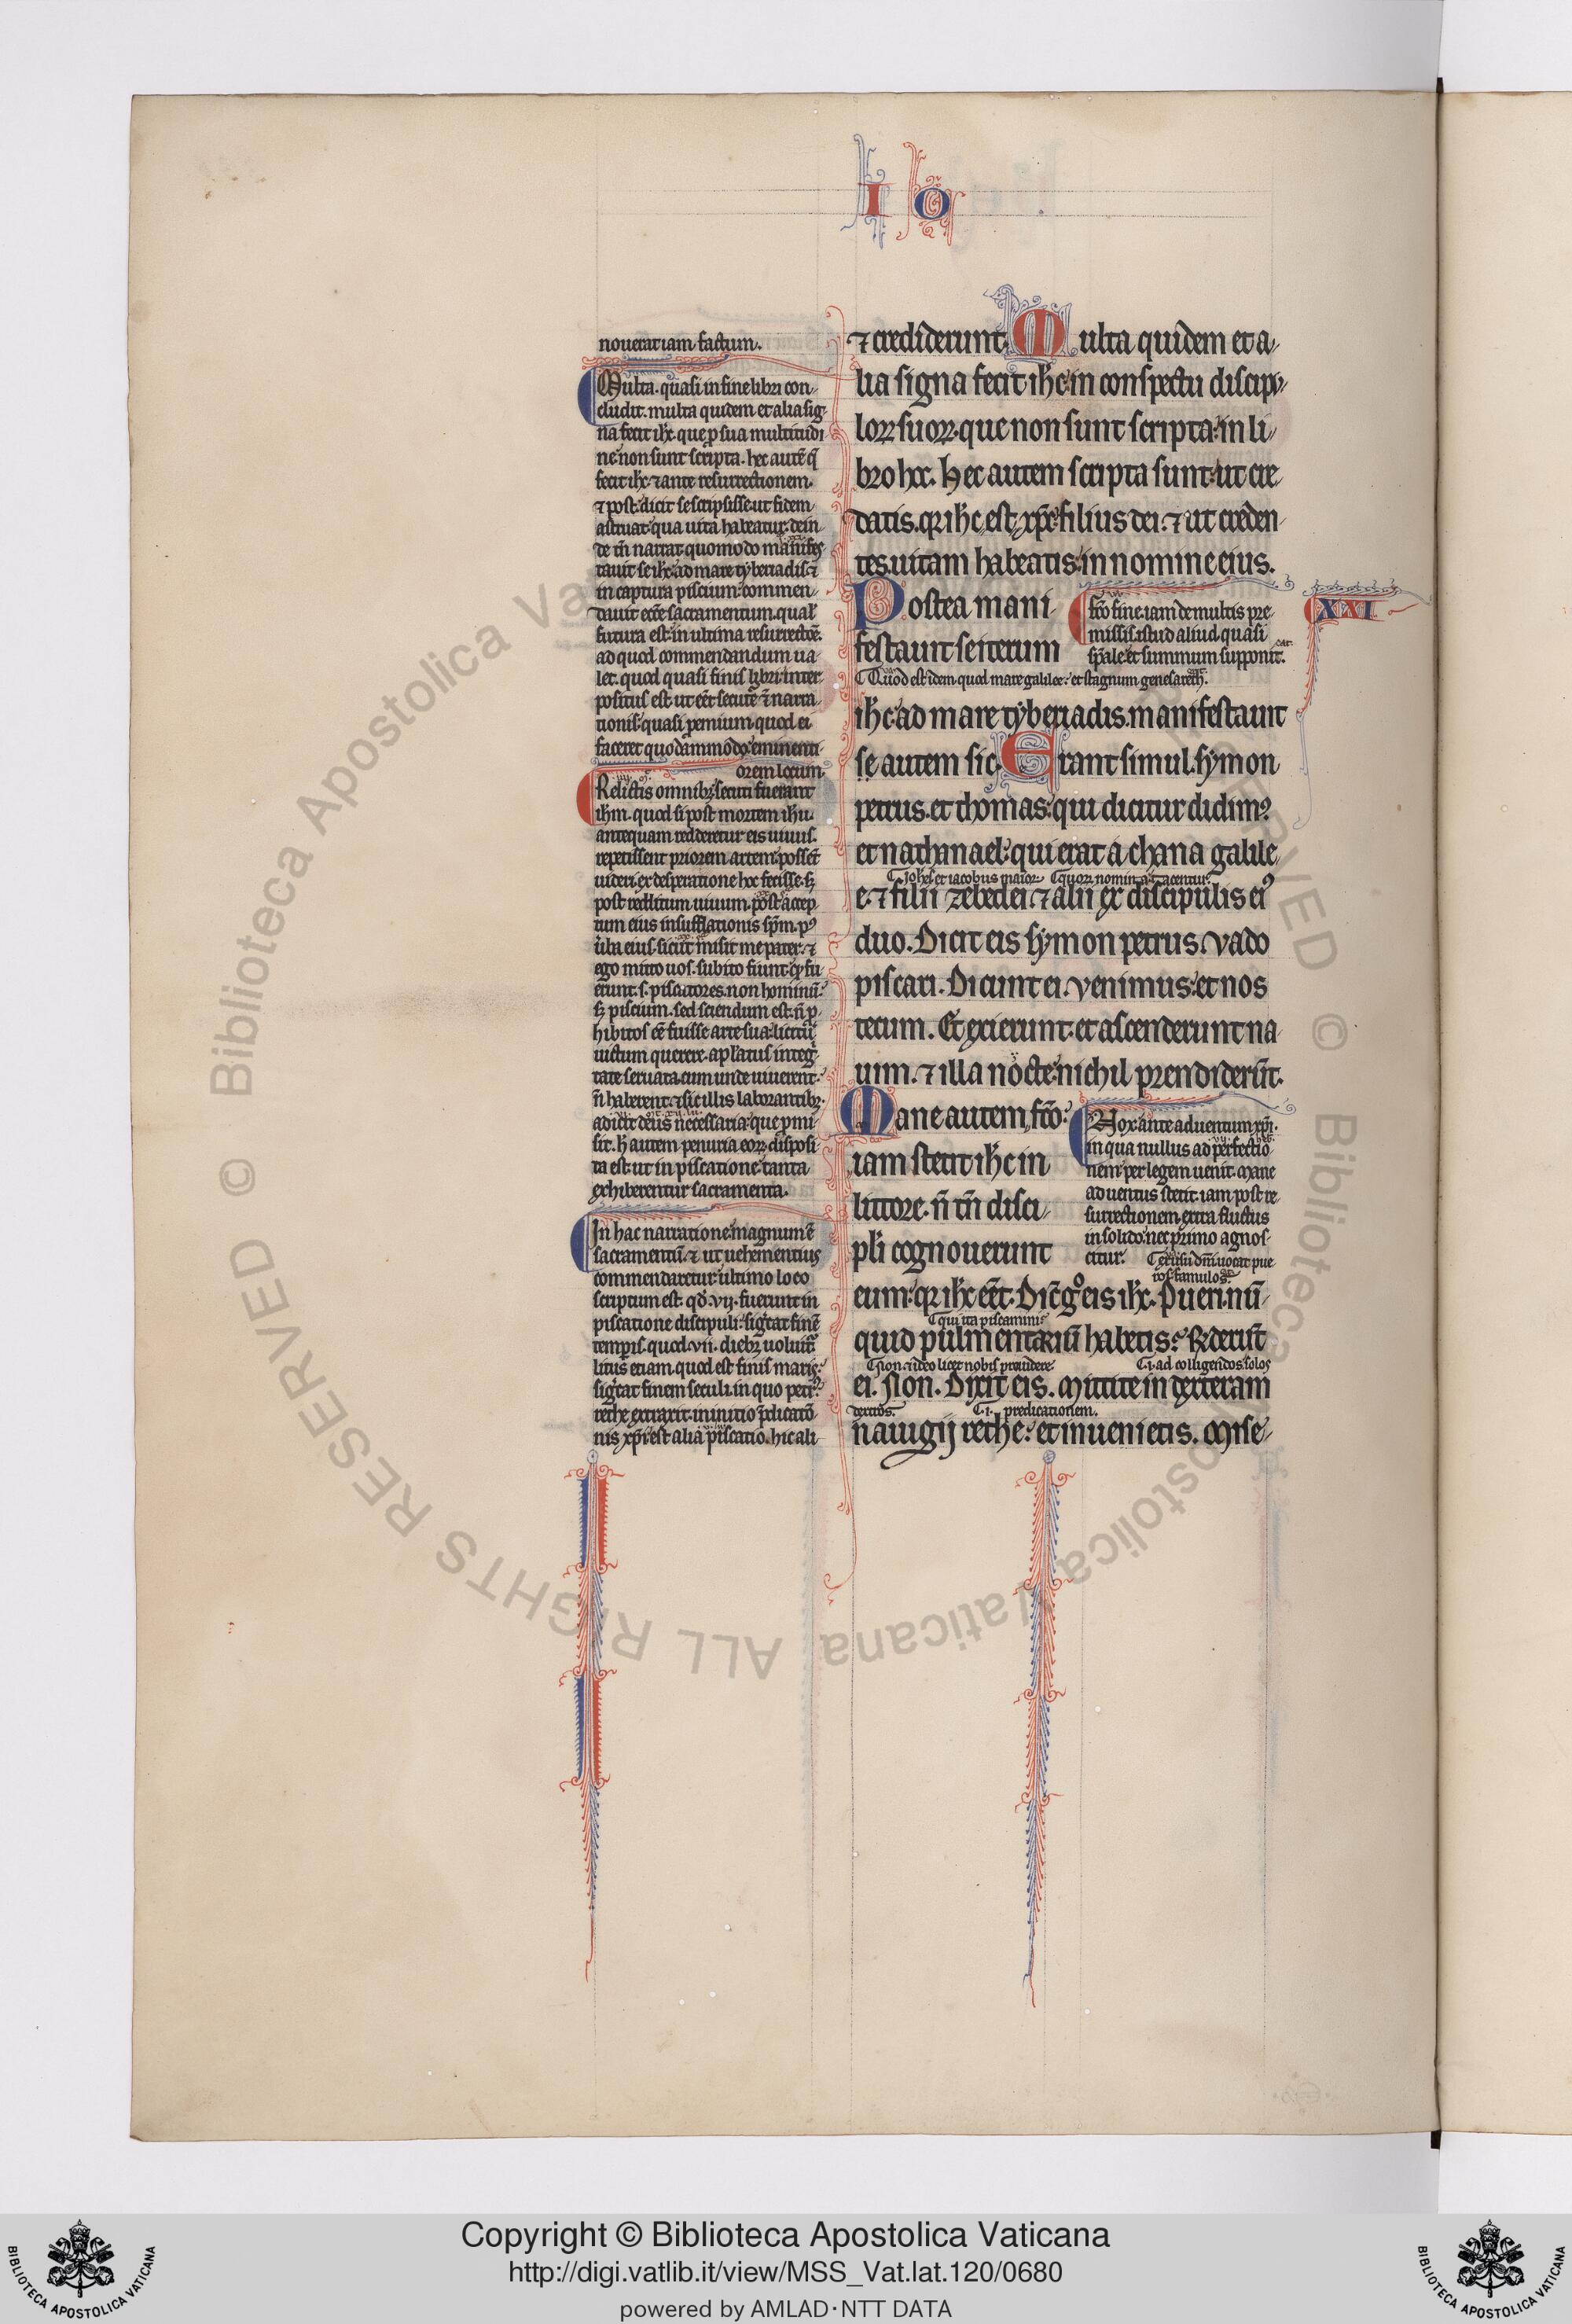 I O
noverat iam factum.
Multa. quasi in fine libri con-
cludit. multa quidem et alia sig-
na fecit ihc. que p sua multitudi-
ne non sunt scripta. hec autē q̄
fecit ihc. ⁊ ante resurrectionem.
⁊ post. dicit se scripsisse. ut fidem
astruat. qua uita habeatur. dein-
de tn̄ narrat. quomodo manifes-
tauit se ihc. ad mare tyberiadis. ⁊
in captura piscium. commen-
dauit ecc̄e sacramentum. qual'
futura est in ultima resurrectōe.
ad quod commendandum ua-
let. quod quasi finis libri. inter-
positus est. ut eēt secutē ⁊ narra-
tionis. quasi ꝓemium. quod ei
faceret quodāmmodo eminenti-
orem locum.
Relictis omnibꝫ secuti fuerant
ihm. quod si post mortem ihu.
antequam redderetur eis uiuus.
repetissent priorem artem. possēt
uideri ex desperatione hoc fecisse. sꝫ
post redditum uiuum. post accep-
tum eius insufflationis spm̄. pꝰ
ūba eius. sicut misit me pater. ⁊
ego mitto uos. subito fiunt qd fu-
erunt. s. piscatores. non hominū.
sꝫ piscium. sed sciendum est. n̄ p̄-
hibitos eē fuisse arte sua. licitū
uictum querere. apl'atus integ̃-
tate seruata. cum unde uiuerent.
n̄ haberent. ⁊ sic illis laborantibꝫ.
adicit deus necessaria. que ꝓmi-
sit. h̄ autem penuria eoꝝ. disposi-
ta est. ut in piscatione. tanta
exhiberentur sacramenta.
In hac narratione magnum ē
sacramentū. ⁊ ut uehementius
commendaretur. ultimo loco
scriptum est. qd̄ .vij. fuerunt in
piscatione discipuli. sigͨcat finē
temporis. quod .vii. diebꝫ uoluit̃.
litus etiam. quod est finis maris.
sigͨcat finem seculi. in quo petrꝰ
rethe extraxit. in initio p̄dicatō-
nis xp̄i. est alia piscatio. hic ali-
⁊ crediderunt. Multa quidem et a-
lia signa fecit ihc. in conspectu discipu-
loꝝ suoꝝ. que non sunt scripta. in li-
bro hoc. Hec autem scripta sunt. ut cre-
datis. qꝛ ihc est xpc̄ filius dei. ⁊ ut creden-
tes. uitam habeatis. in nomine eius.
XXI
Postea mani-
festauit se iterum
fc̄o fine. iam de multis pre-
missis. istud aliud. quasi
sp̄ale et summum supponit.
Quod est idem quod mare galilee. et stagnum genesareth.
ihc. ad mare tyberiadis. manifestauit
se autem sic. Erant simul. symon
petrus. et thomas. qui dicitur didimꝰ
et nathanael. qui erat a chana galile-
Ioh̄es et iacobus maior. quoꝝ nomina tacentur.
e. ⁊ filii zebedei. ⁊ alii ex discipulis eiꝰ
duo. Dicit eis symon petrus. Vado
piscari. Dicunt ei. Venimus. et nos
tecum. Et exierunt. et ascenderunt na-
uim. ⁊ illa nocte. nichil prendiderūt.
Mane autem fc̄o.
iam stetit ihc in
littore. n̄ tn̄ disci-
pl'i cognouerunt
Nox ante aduentum xp̄i.
in qua nullus ad perfectio-
nem per legem uenit. mane
aduentus stetit. iam post re-
surrectionem. extra fluctus
in solido. nec primo agnos-
citur. Ex usu dn̄i uocat pue-
ros famulos.
eum. qꝛ ihc eēt. Dic̄ gͦ eis ihc. Pueri. nū-
qui ita piscamini.
quid pulmentariū habetis. R̄derūt
Non. ideo licet nobis prouidere. .i. ad colligendos solos
ei. Non. Dixit eis. Mittite in dexteram
dextros. .i. predicationem.
nauigij rethe. et inuenietis. Mise-
Copyright © Biblioteca Apostolica Vaticana
http://digi.vatlib.it/view/MSS_Vat.lat.120/0680
powered by AMLAD·NTT DATA
BIBLIOTECA APOSTOLICA VATICANA
BIBLIOTECA APOSTOLICA VATICANA
© Biblioteca Apostolica Vaticana ALL RIGHTS RESERVED